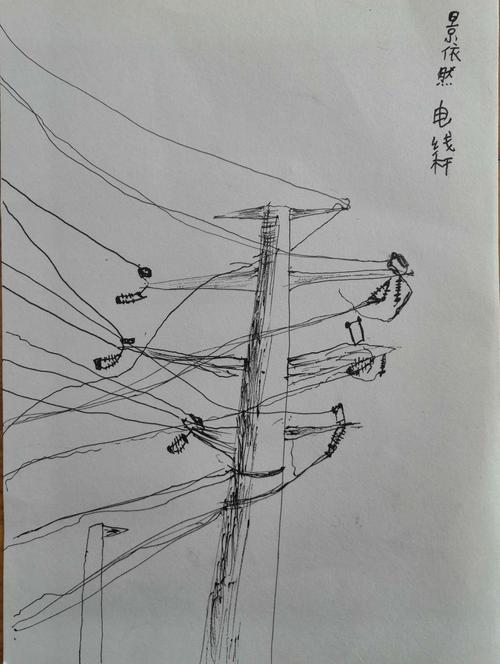 景依然 电线杆